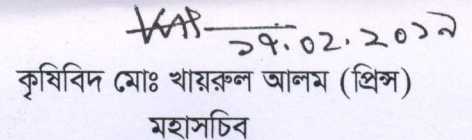 ২৭.০২.২০১৯
কৃষিবিদ মোঃ খায়রুল আলম (প্রিন্স)
মহাসচিব